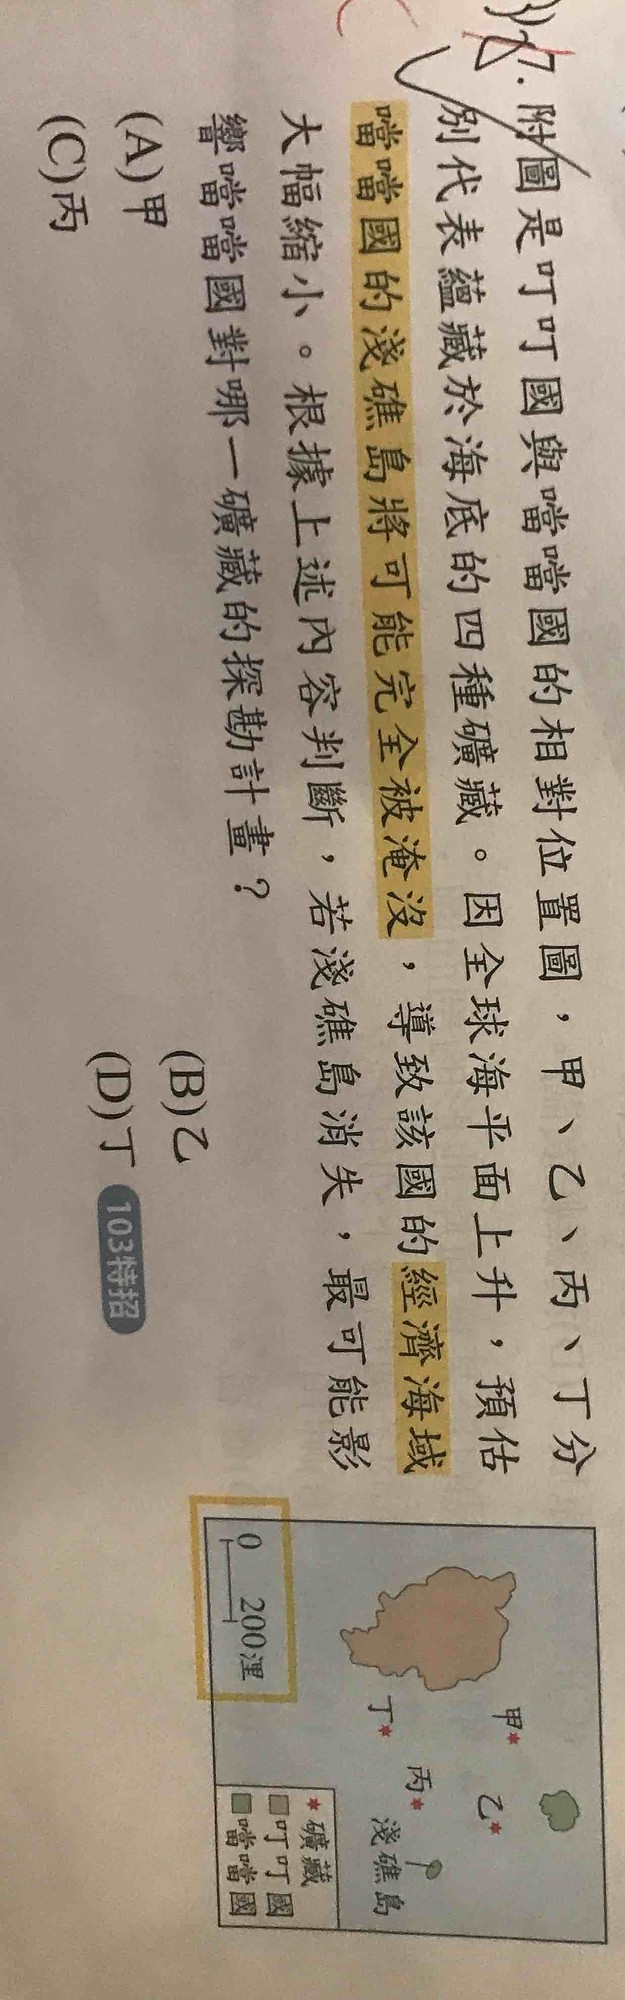 7. 附圖是叮叮國與噹噹國的相對位置圖，甲、乙、丙、丁分
別代表蘊藏於海底的四種礦藏。因全球海平面上升，預估
噹噹國的淺礁島將可能完全被淹沒，導致該國的經濟海域
大幅縮小。根據上述內容判斷，若淺礁島消失，最可能影
響噹噹國對哪一礦藏的探勘計畫？
(A)甲
(B)乙
(C)丙
(D)丁 103特招
甲
乙
丙
丁
淺礁島
0 200浬
礦藏
叮叮國
噹噹國